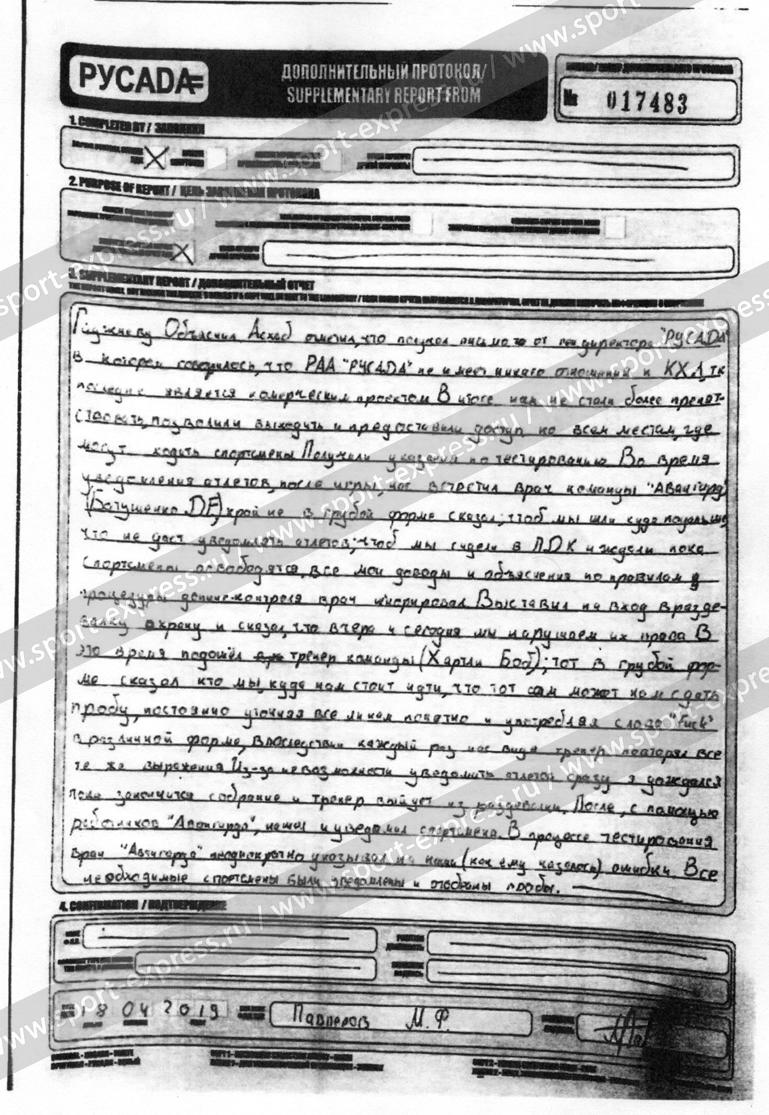 РУСАДА
ДОПОЛНИТЕЛЬНЫЙ ПРОТОКОЛ/
SUPPLEMENTARY REPORT FROM
№ 017483
1. COMPLETED BY /
2. PURPOSE OF REPORT / ЦЕЛЬ ПРОТОКОЛА
3. SUPPLEMENTARY REPORT / ДОПОЛНИТЕЛЬНЫЙ ОТЧЕТ
Объяснил Асхаб ответил, что получил письмо от гендиректора "РУСАДА"
в котором говорилось, что РАА "РУСАДА" не имеет никакого отношения к КХЛ, тк
последняя является комерческим проектом В итоге нам не стали более препят-
ствовать, позволили выходить и предоставили доступ ко всем местам, где
могут ходить спортсмены Получили указания по тестированию Во время
уведомления атлетов, после игры, нас встретил врач команды "Авангард"
(Батушенко DF) крайне в грубой форме сказал, чтоб мы шли куда подальше,
что не даст уведомлять атлетов; чтоб мы сидели в ПДК и ждали пока
спортсмены освободятся, все мои доводы и объяснения по правилам и
процедуры допинг-контроля врач игнорировал Выставил на вход в разде-
валку охрану и сказал, что вчера и сегодня мы нарушаем их права В
это время подошёл тренер команды (Хартли Боб); тот в грубой фор-
ме сказал кто мы, куда нам стоит идти, что тот сам может нам сдать
пробу, постоянно уточняя все ли нам понятно и употребляя слово "Fuck"
в различной форме, впоследствии каждый раз нас видя тренер повторял все
те же выражения Из-за невозможности уведомить атлетов сразу я дождался
пока закончится собрание и тренер выйдет из раздевалки. После, с помощью
работников "Авангарда", нашел и уведомил спортсмена. В процессе тестирования
врач "Авангарда" неоднократно указывал на наши (как ему казалось) ошибки. Все
необходимые спортсмены были уведомлены и отобраны пробы.
4. CONFIRMATION / ПОДТВЕРЖДЕНИЕ
18 04 2019
М. Ф.
www.sport-express.ru / www.sport-express.ru